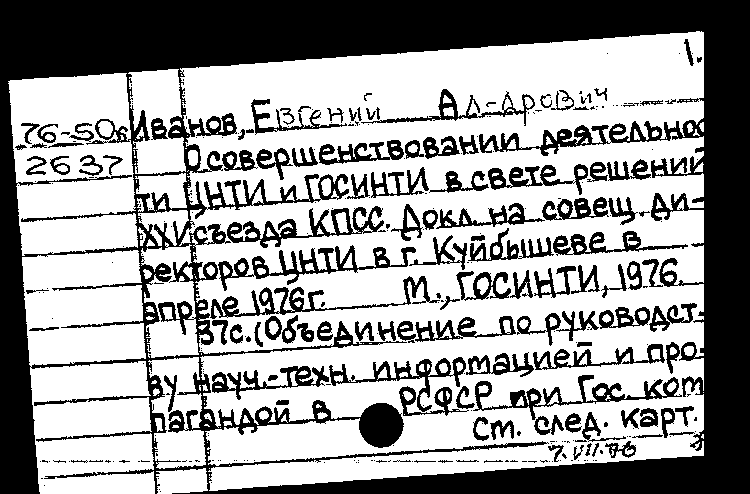 1.
76-50к Иванов, Евгений Ал-дрович
2637 О совершенствовании деятельнос
ти ЦНТИ и ГОСИНТИ в свете решений
XXV съезда КПСС. Докл. на совещ. ди-
ректоров ЦНТИ в г. Куйбышеве в
апреле 1976г. М., ГОСИНТИ, 1976.
37с. (Объединение по руководст-
ву науч.-техн. информацией и про-
пагандой в РСФСР при Гос. ком
См. след. карт.
7.VII.76